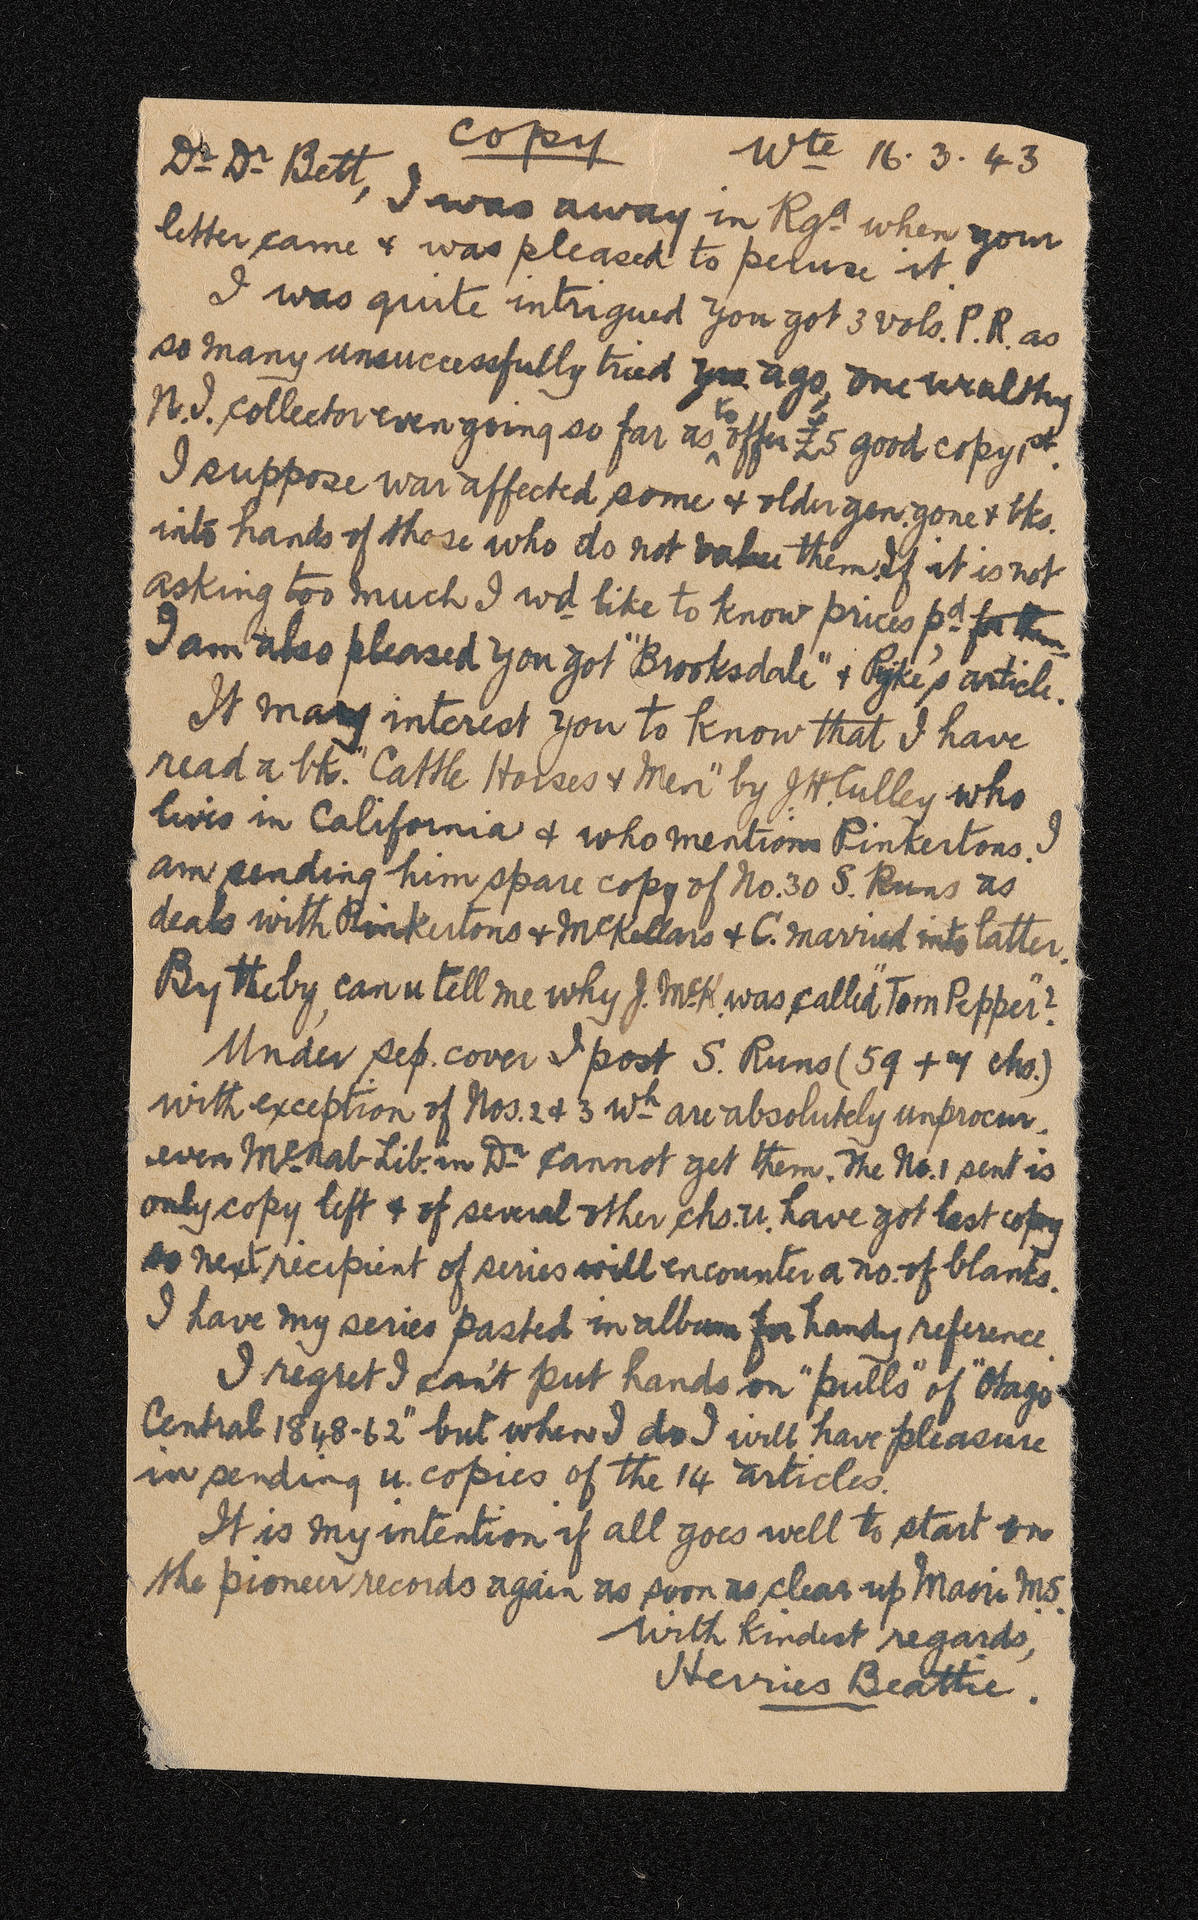 copy
Wte 16.3.43
Dr Dr Bett, I was away in Rga when your
letter came & was pleased to peruse it.
I was quite intrigued you got 3 vols. P.R. as
so many unsuccessfully tried yrs ago, one wealthy
N.I. collector even going so far as to offer £5 good copy 1st.
I suppose war affected some & older gen. gone & bks.
into hands of those who do not value them. If it is not
asking too much I wd like to know prices pd for them
I am also pleased you got "Brooksdale" & Pyke's article.
It may interest you to know that I have
read a bk. "Cattle Horses & Men" by J.H. Culley who
lives in California & who mentions Pinkertons. I
am sending him spare copy of No. 30 S. Runs as
deals with Pinkertons & McKellars & C. married into latter.
By the by, can u tell me why J. McK. was called "Tom Pepper"?
Under sep. cover I post S. Runs (59 + chs.)
with exception of Nos. 2 & 3 wh are absolutely unprocur.
even McNab Lib. in Dn cannot get them. The No. 1 sent is
only copy left & of several other chs. u. have got last copy
so next recipient of series will encounter a no. of blanks.
I have my series pasted in album for handy reference.
I regret I can't put hands on "pulls" of "Otago
Central 1848-62" but when I do I will have pleasure
in sending u. copies of the 14 articles.
It is my intention if all goes well to start on
the pioneer records again as soon as clear up Maori M.S.
With kindest regards,
Herries Beattie.